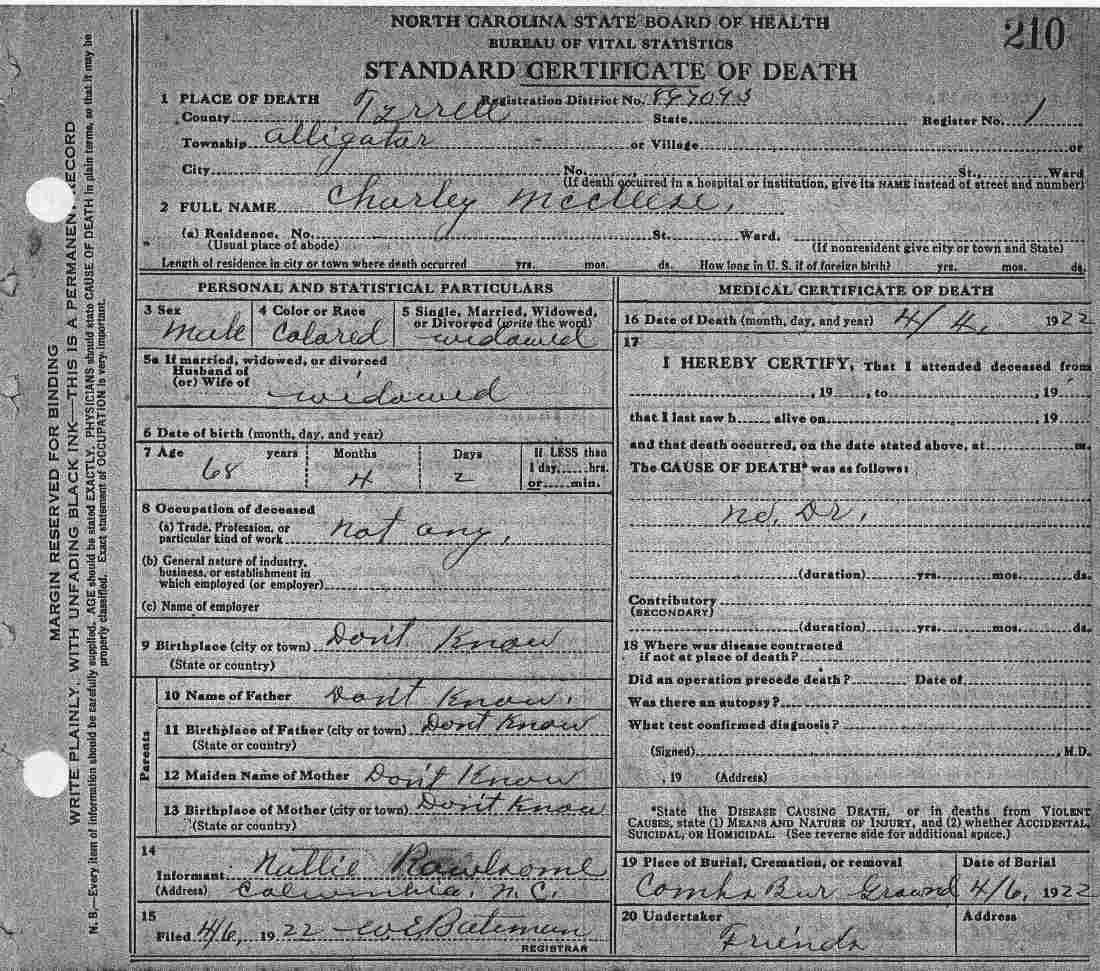 210
NORTH CAROLINA STATE BOARD OF HEALTH
BUREAU OF VITAL STATISTICS
STANDARD CERTIFICATE OF DEATH
1 PLACE OF DEATH Registration District No. 897093
County Tyrrell State Register No. 1
Township Alligator or Village or
City No. St., Ward
(If death occurred in a hospital or institution, give its NAME instead of street and number)
2 FULL NAME Charley McCleese.
(a) Residence. No. St. Ward.
(Usual place of abode) (If nonresident give city or town and State)
Length of residence in city or town where death occurred yrs. mos. ds. How long in U. S. if of foreign birth? yrs. mos. ds.
PERSONAL AND STATISTICAL PARTICULARS
3 Sex 4 Color or Race 5 Single, Married, Widowed,
or Divorced (write the word)
Male Colored widowed
5a If married, widowed, or divorced
Husband of
(or) Wife of widowed
6 Date of birth (month, day, and year)
7 Age years Months Days If LESS than
68 4 2 1 day, hrs.
or min.
8 Occupation of deceased
(a) Trade, Profession, or
particular kind of work not any.
(b) General nature of industry,
business, or establishment in
which employed (or employer)
(c) Name of employer
9 Birthplace (city or town) Don't Know
(State or country)
Parents
10 Name of Father Don't Know.
11 Birthplace of Father (city or town) Don't Know
(State or country)
12 Maiden Name of Mother Don't Know
13 Birthplace of Mother (city or town) Don't Know
(State or country)
14
Informant Nattie
(Address) Columbia, N.C.
15
Filed 4/6, 1922 WE Bateman
REGISTRAR
MEDICAL CERTIFICATE OF DEATH
16 Date of Death (month, day, and year) 4/4, 1922
17
I HEREBY CERTIFY, That I attended deceased from
, 19 , to , 19
that I last saw h alive on 19
and that death occurred, on the date stated above, at m.
The CAUSE OF DEATH* was as follows:
no. Dr.
(duration) yrs. mos. ds.
Contributory
(SECONDARY)
(duration) yrs. mos. ds.
18 Where was disease contracted
if not at place of death?
Did an operation precede death? Date of
Was there an autopsy?
What test confirmed diagnosis?
(Signed) , M.D.
, 19 (Address)
*State the DISEASE CAUSING DEATH, or in deaths from VIOLENT
CAUSES, state (1) MEANS AND NATURE OF INJURY, and (2) whether ACCIDENTAL,
SUICIDAL, OR HOMICIDAL. (See reverse side for additional space.)
19 Place of Burial, Cremation, or removal Date of Burial
Combs Bur Ground 4/6, 1922
20 Undertaker Address
Friends
MARGIN RESERVED FOR BINDING
WRITE PLAINLY, WITH UNFADING BLACK INK—THIS IS A PERMANENT RECORD
N. B.—Every item of information should be carefully supplied. AGE should be stated EXACTLY. PHYSICIANS should state CAUSE OF DEATH in plain terms, so that it may be
properly classified. Exact statement of OCCUPATION is very important.